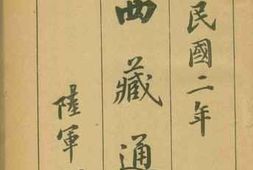 民國二年
西藏通
陸軍